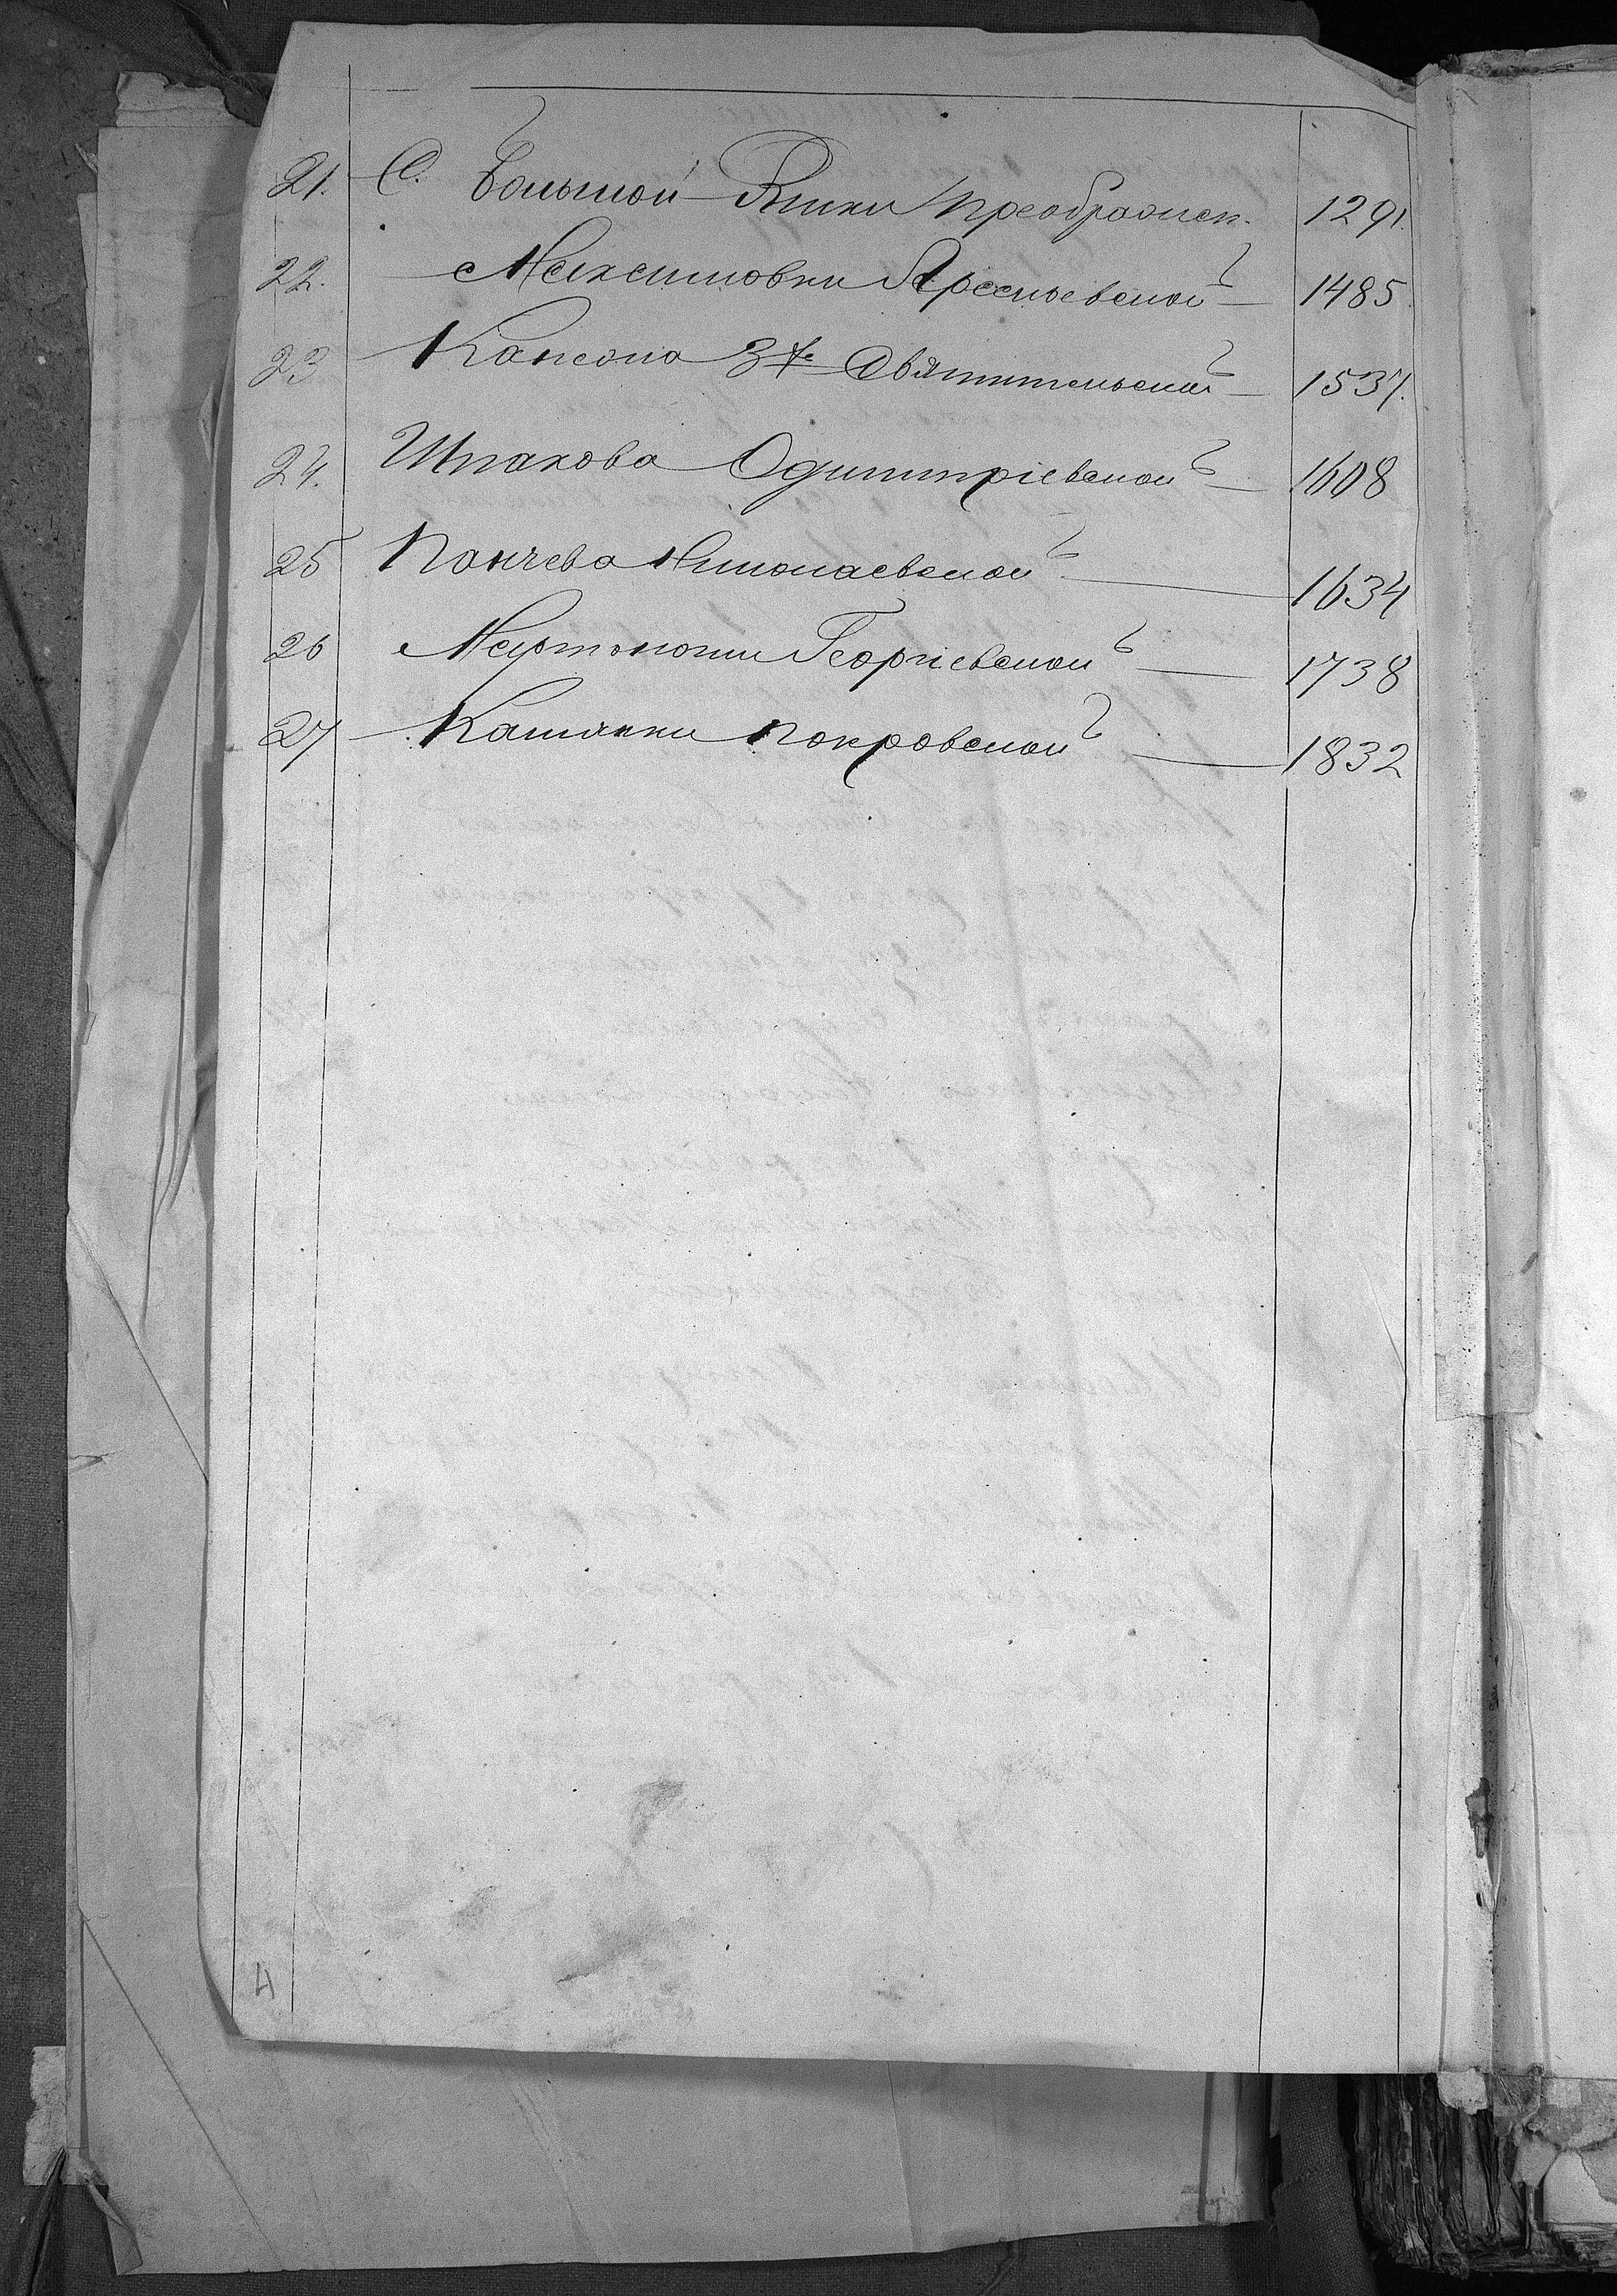 21. С. Большой Виски Преображен. 1291.
22. Мексимовки Арсеньевской 1485
23 Канежа 3х Святительской 1537.
24. Шпакова Одигитріевской 1608
25 Панчева Николаевской 1634
26 Мартоноши Георгіевской 1738
27 Камянки Покровской 1832
4